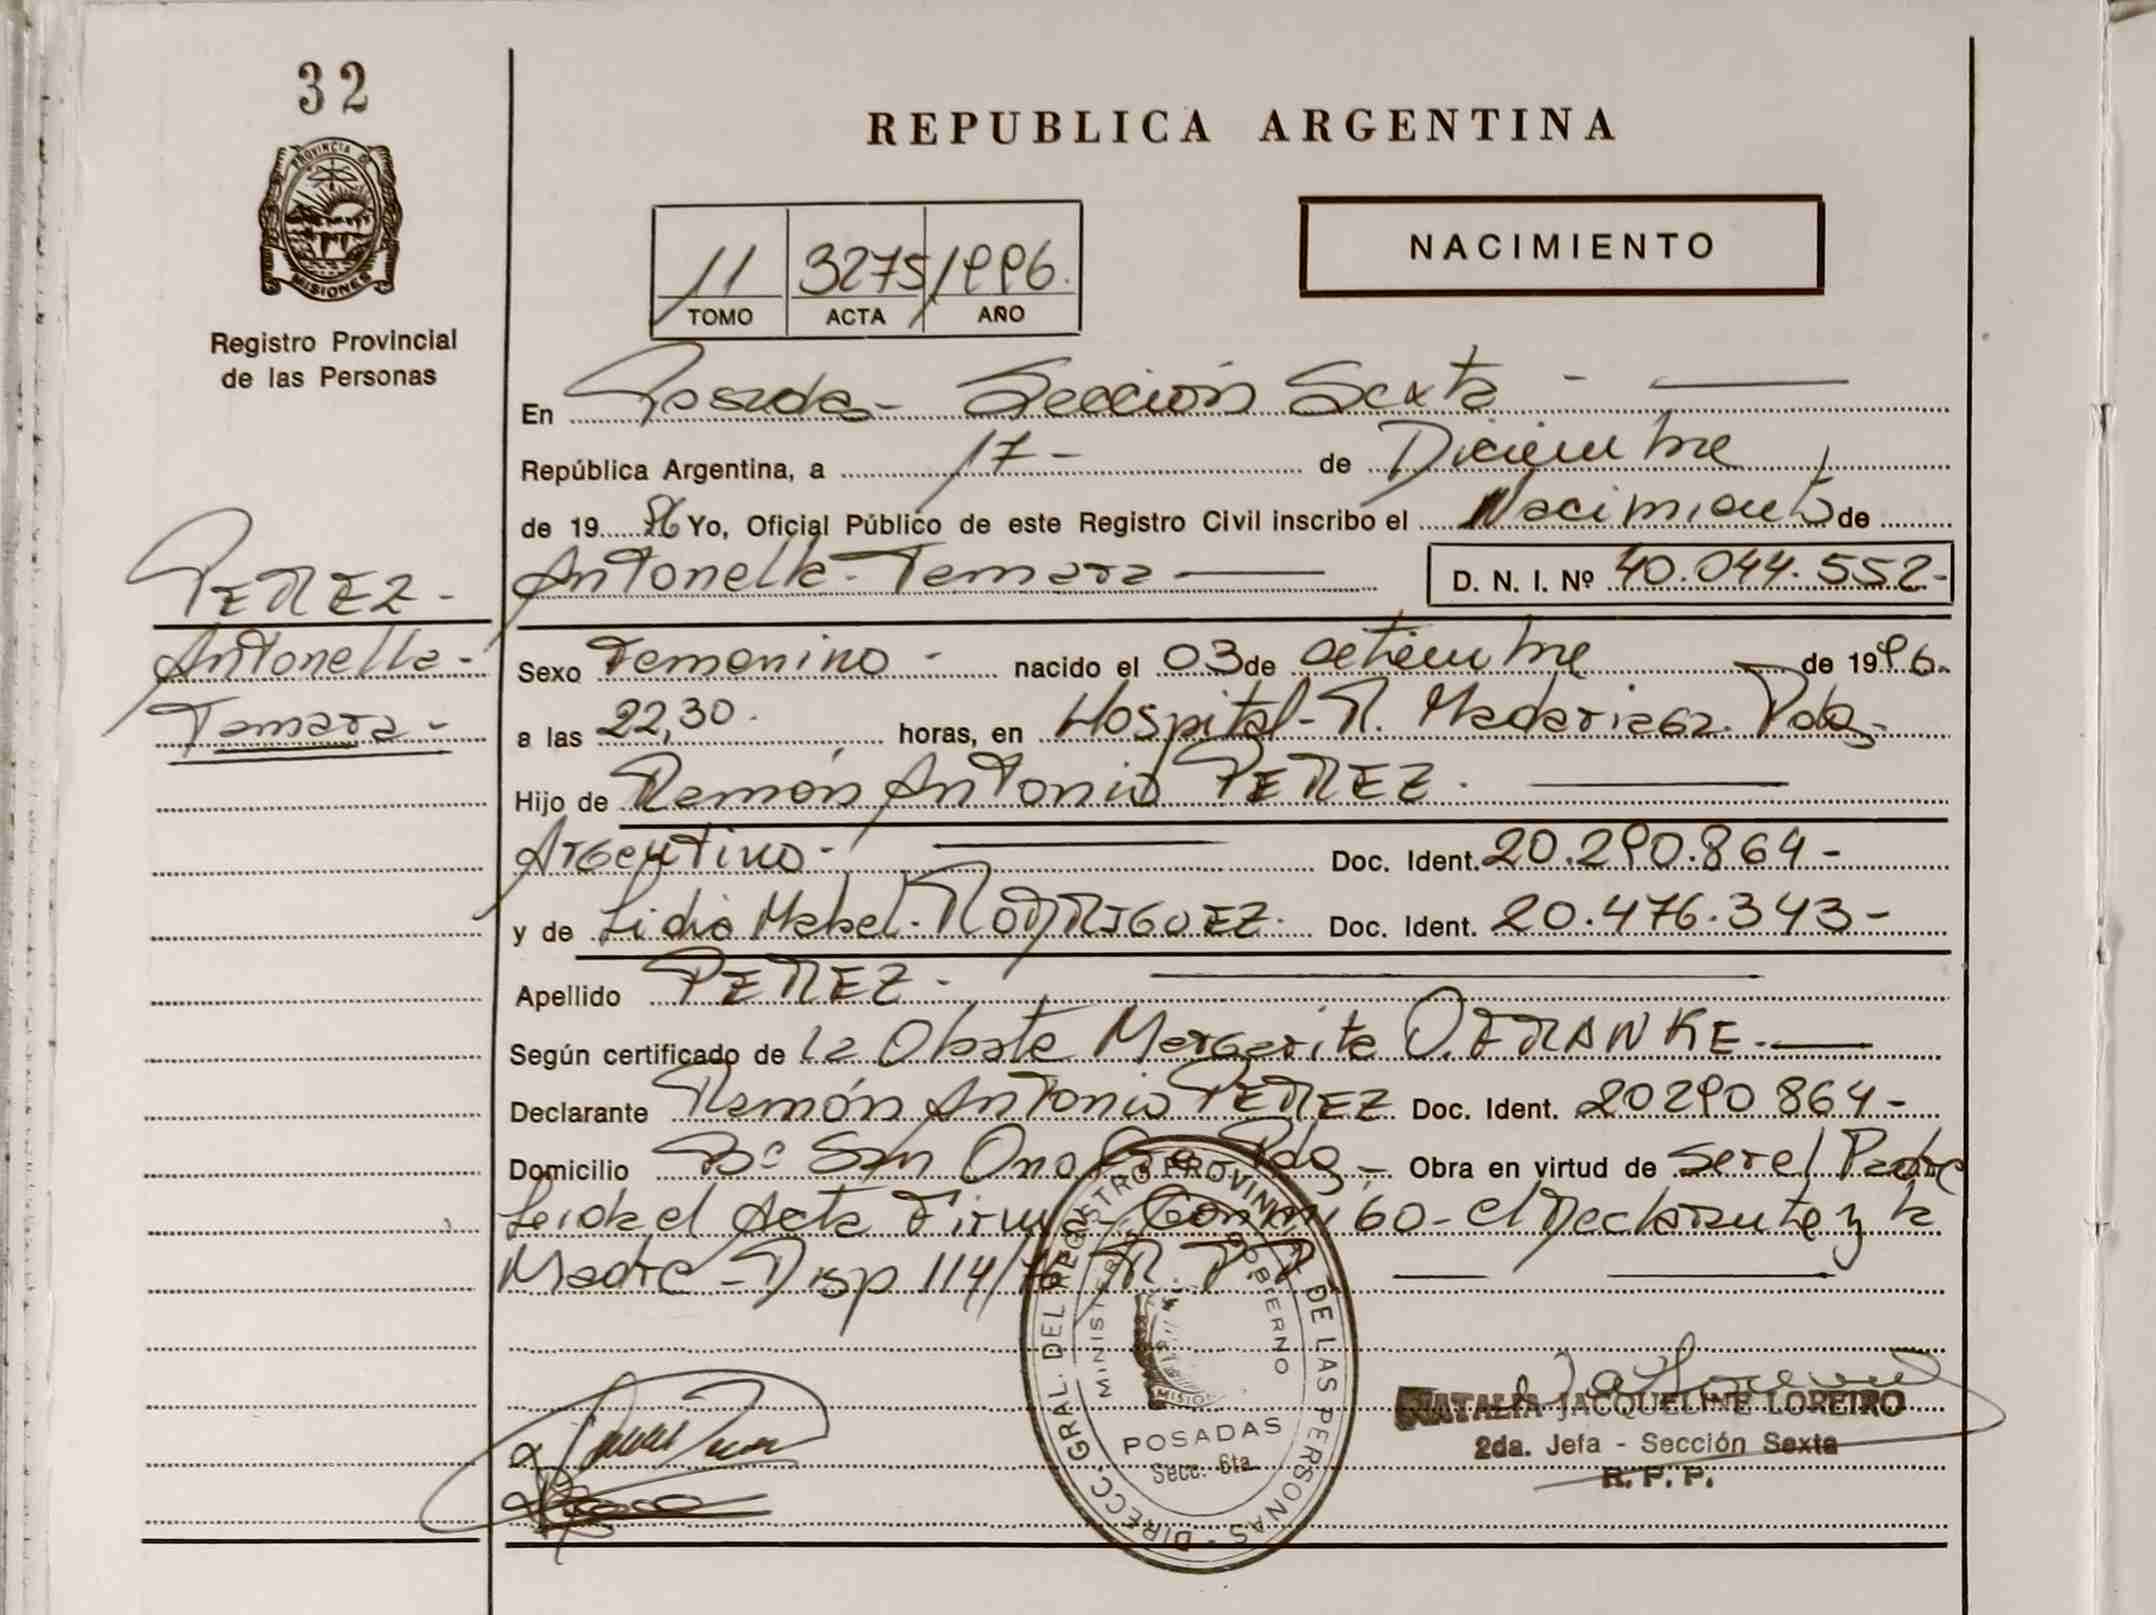 32
PROVINCIA DE
MISIONES
Registro Provincial
de las Personas
REPUBLICA ARGENTINA
NACIMIENTO
11 3275 1996.
TOMO ACTA AÑO
En Posadas - Sección Sexta -
República Argentina, a 17 - de Diciembre
de 19 96 Yo, Oficial Público de este Registro Civil inscribo el Nacimiento de
Antonella - Tamara D. N. I. Nº 40.044.552-
PEREZ -
Antonella -
Tamara -
Sexo Femenino - nacido el 03 de Setiembre de 1996.
a las 22,30. horas, en Hospital - R. Madariaga. Pdas.
Hijo de Ramón Antonio PEREZ.
Argentino - Doc. Ident. 20.290.864 -
y de Lidia Mabel - RODRIGUEZ. Doc. Ident. 20.476.343 -
Apellido PEREZ -
Según certificado de La Obste Margarita O. FRANKE.
Declarante Ramón Antonio PEREZ Doc. Ident. 20290864 -
Domicilio Bº San Onofre Pdas - Obra en virtud de ser el Padre
Leida el Acta Firma Conmigo - el Declarante y la
Madre - Disp 114/ R.P.P.
DIRECC. GRAL. DEL REGISTRO PROVINCIAL DE LAS PERSONAS
MINISTERIO GOBIERNO
MISIO
POSADAS
Secc. 6ta
NATALIA JACQUELINE LOREIRO
2da. Jefa - Sección Sexta
R. P. P.